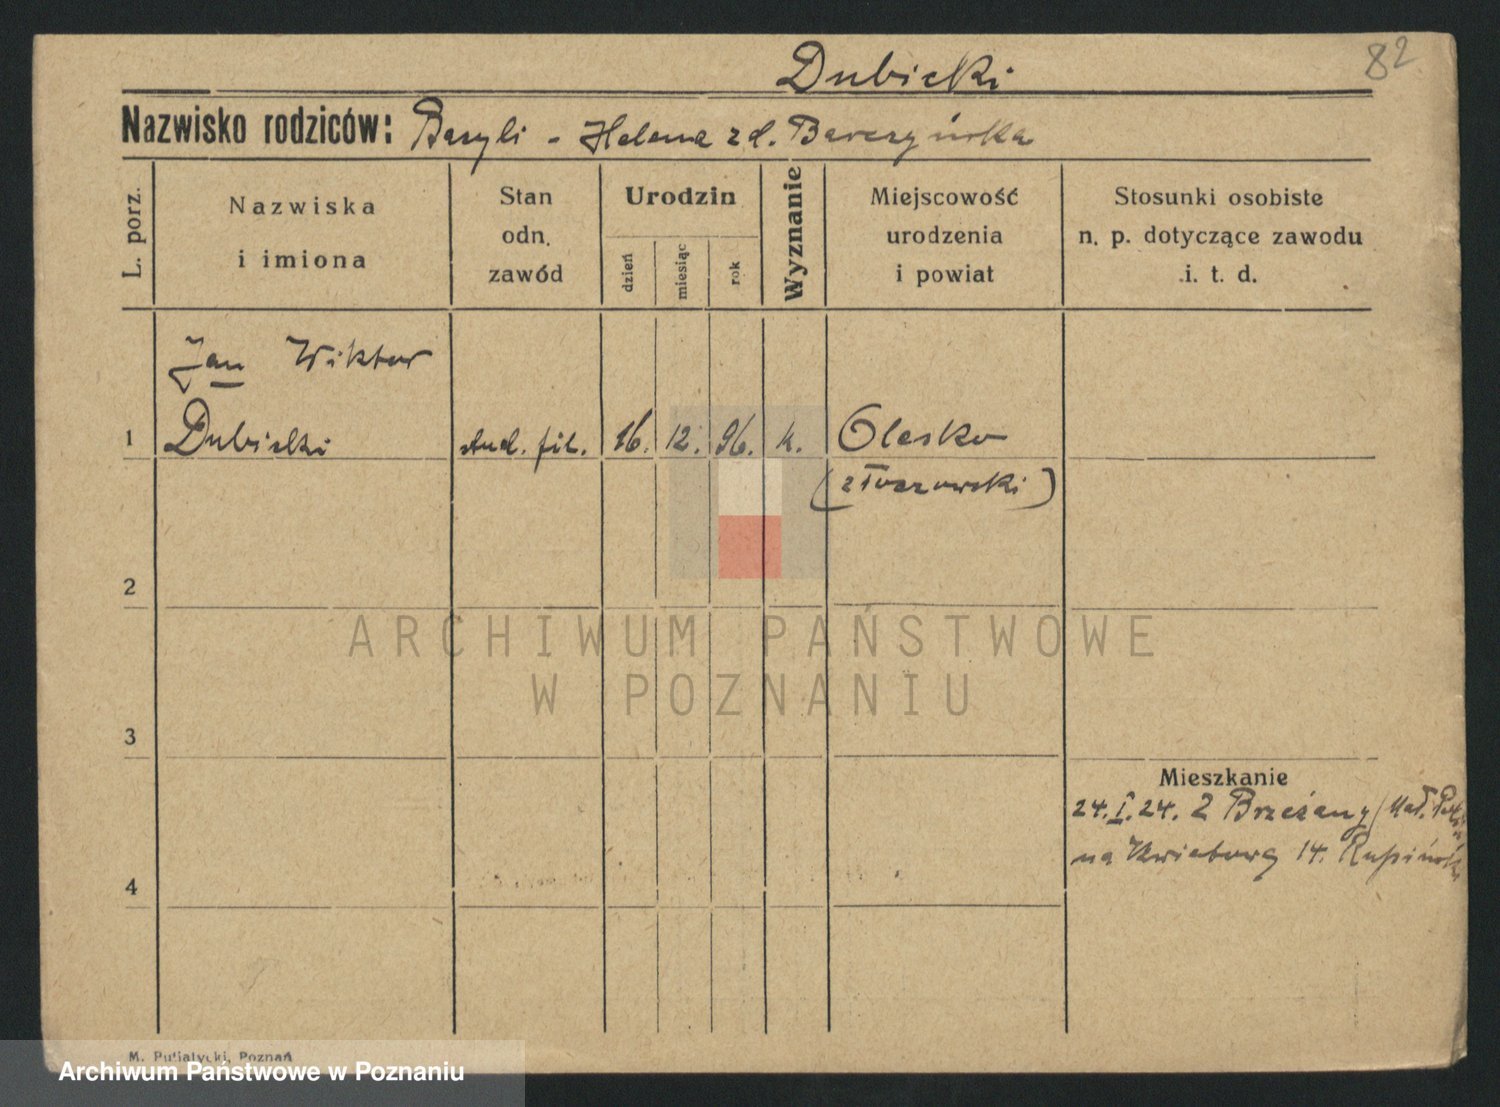 82
Dubicki
Nazwisko rodziców: Bazyli - Helena z d. Barczyńska
L. porz.
Nazwiska
i imiona
Stan
odn.
zawód
Urodzin
dzień
miesiąc
rok
Wyznanie
Miejscowość
urodzenia
i powiat
Stosunki osobiste
n. p. dotyczące zawodu
i. t. d.
Jan Wiktor
1 Dubicki stud. fil. 16. 12. 96. k. Olesko
(złoczowski)
2
ARCHIWUM PAŃSTWOWE
W POZNANIU
3
Mieszkanie
24.I.24. Z Brzeżany (Młp.
na Kwiatową 14.
4
M. Putiatycki, Poznań
Archiwum Państwowe w Poznaniu